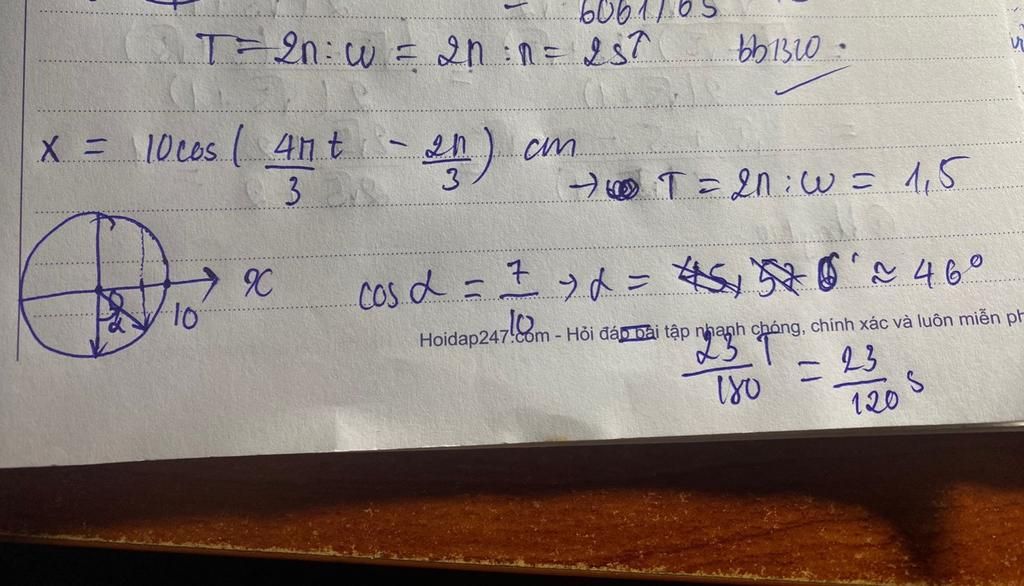 6061765
T = 2π : ω = 2π : π = 2s↑ bb1320 .
x = 10cos( 4π/3 t - 2π/3 ) cm
→ T = 2π : ω = 1,5
x
10
α
cos α = 7/10 → α = ≈ 46°
Hoidap247.com - Hỏi đáp bài tập nhanh chóng, chính xác và luôn miễn ph
23/180 T = 23/120 s